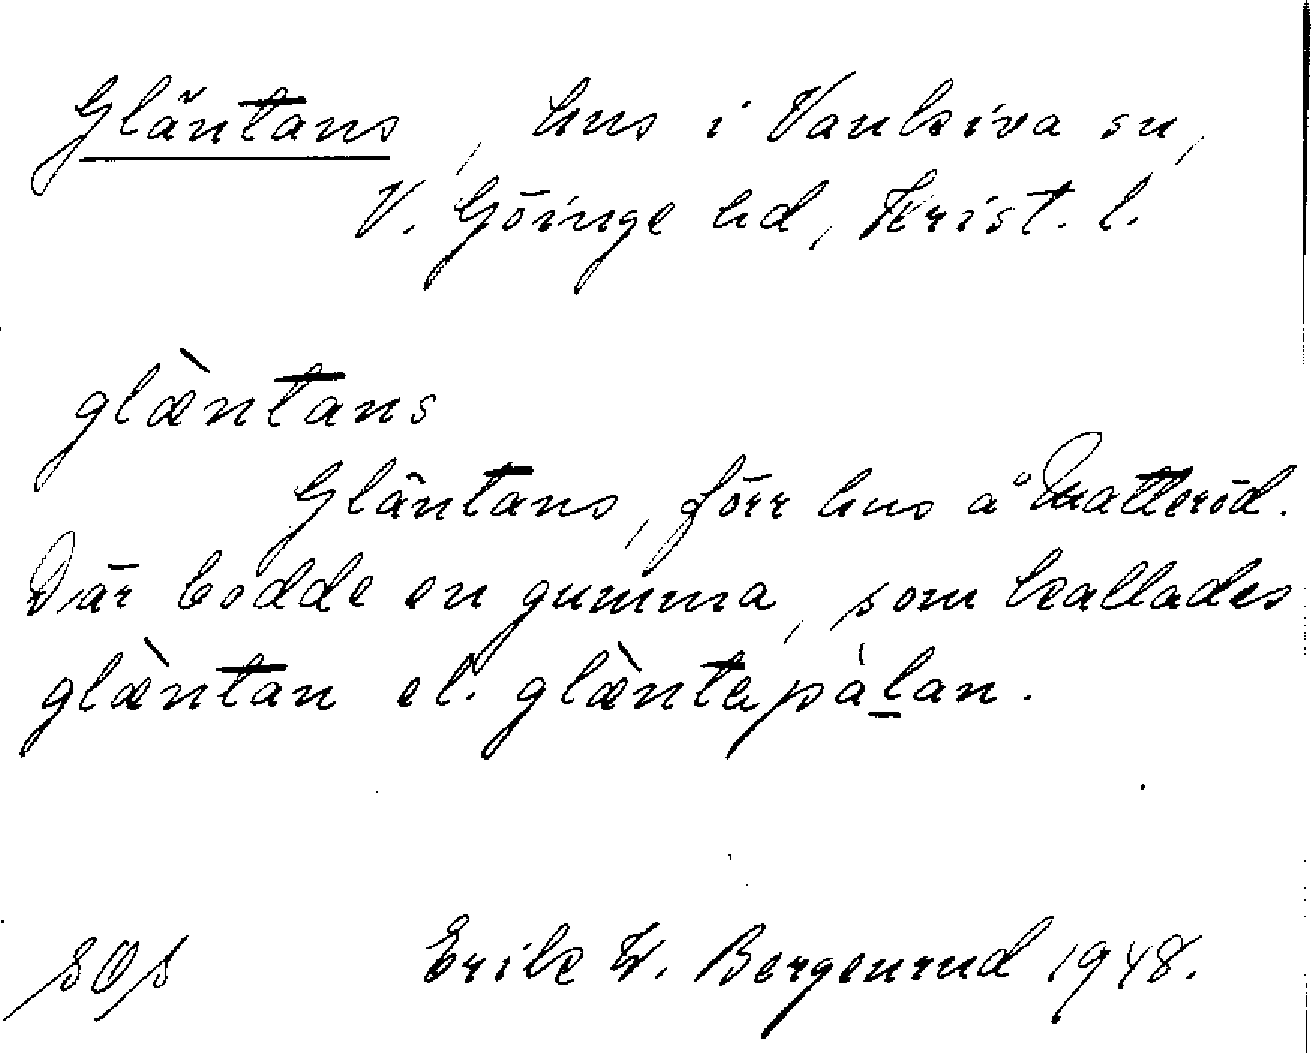 Gläntans, hus i Vankiva sn,
V. Göinge hd, Krist. l.
glæ̀ntans
Gläntans, förr hus å Matteröd.
Där bodde en gumma, som kallades
glæ̀ntan el. glæ̀ntepàl̲an.
sOs Erik W. Bergenrud 1948.